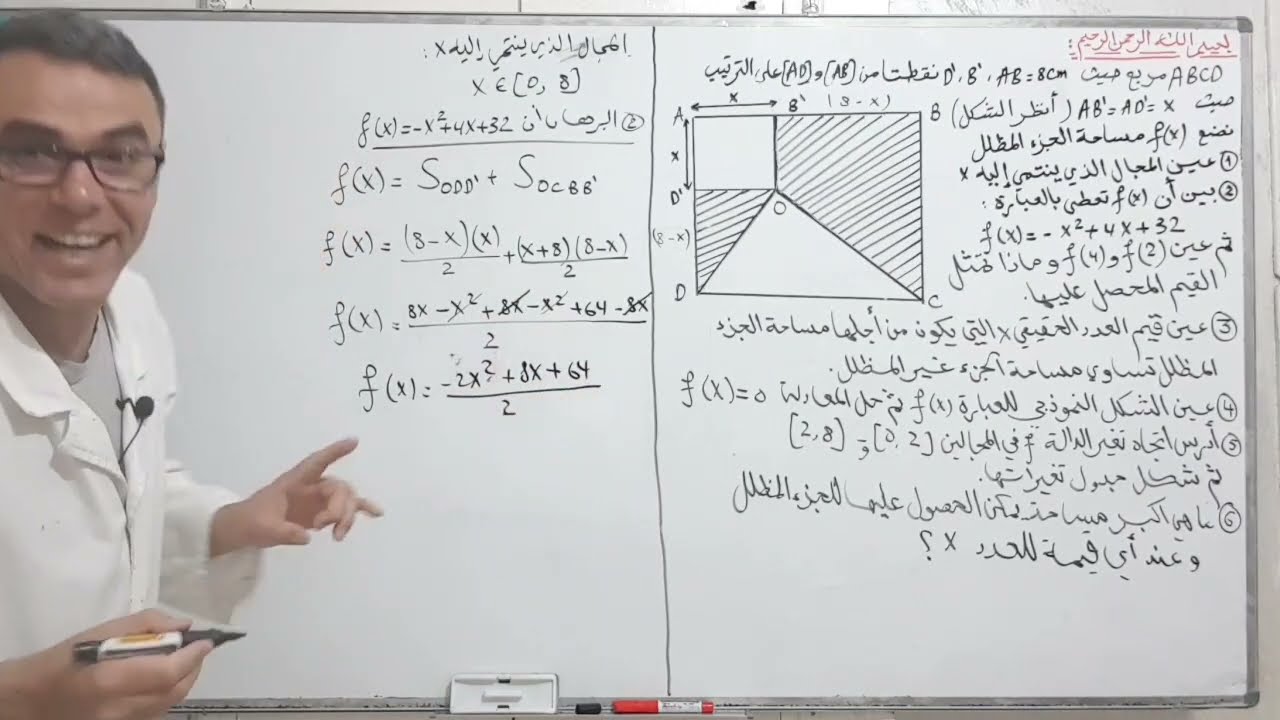 بسم الله الرحمن الرحيم:
ABCD مربع حيث AB = 8cm ، B' ، D' نقطتا من [AB] و [AD] على الترتيب
حيث AB' = AD' = x ( أنظر الشكل)
نضع f(x) مساحة الجزء المظلل
① عين المجال الذي ينتمي إليه x
② بين أن f(x) تعطى بالعبارة:
f(x) = - x² + 4x + 32
ثم عين f(2) و f(4) و ماذا تمثل
القيم المحصل عليها.
③ عين قيم العدد الحقيقي x التي يكون من أجلها مساحة الجزء
المظلل تساوي مساحة الجزء غير المظلل.
④ عين الشكل النموذجي للعبارة f(x) ثم حل المعادلة f(x) = 0
⑤ أدرس اتجاه تغير الدالة f في المجالين [0, 2] و [2, 8]
ثم شكل جدول تغيراتها.
⑥ ما هي أكبر مساحة يمكن الحصول عليها للجزء المظلل
و عند أي قيمة للعدد x ؟
A x B' (8-x) B
x
D'
O
(8-x)
D C
المجال الذي ينتمي إليه x :
x ∈ [0, 8]
② البرهان أن f(x) = -x² + 4x + 32
f(x) = S ODD' + S OCBB'
f(x) = (8-x)(x)/2 + (x+8)(8-x)/2
f(x) = 8x - x² + 8x - x² + 64 - 8x / 2
f(x) = -2x² + 8x + 64 / 2